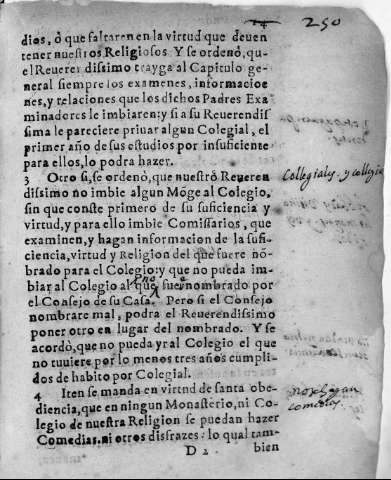 250
dios, ò que faltaren en la virtud que deuen
tener nuestros Religiosos Y se ordenò, qu-
el Reuerendissimo trayga al Capitulo ge-
neral siempre los examenes, informacio-
nes, y relaciones que los dichos Padres Exa
minadores le imbiaren: y si a su Reuerendis
sima le pareciere priuar algun Colegial, el
primer año de sus estudios por insuficiente
para ellos, lo podra hazer.
3 Otro si, se ordenò, que nuestrò Reueren
dissimo no imbie algun Mõge al Colegio,
sin que conste primero de su suficiencia y
virtud, y para ello imbie Comissarios, que
examinen, y hagan informacion de la sufi-
ciencia, virtud y Religion del que fuere nõ-
brado para el Colegio: y que no pueda im-
biar al Colegio al que no fue nombrado por
el Consejo de su Casa. Pero si el Consejo
nombrare mal, podra el Reuerendissimo
poner otro en lugar del nombrado. Y se
acordò, que no pueda yr al Colegio el que
no tuuiere por lo menos tres años cumpli-
dos de habito por Colegial.
4 Iten se manda en virtud de santa obe-
diencia, que en ningun Monasterio, ni Co-
legio de nuestra Religion se puedan hazer
Comedias, ni otros disfrazes: lo qual tam-
D 2 bien
Collegiales y collegio
no se hagan
comedias.